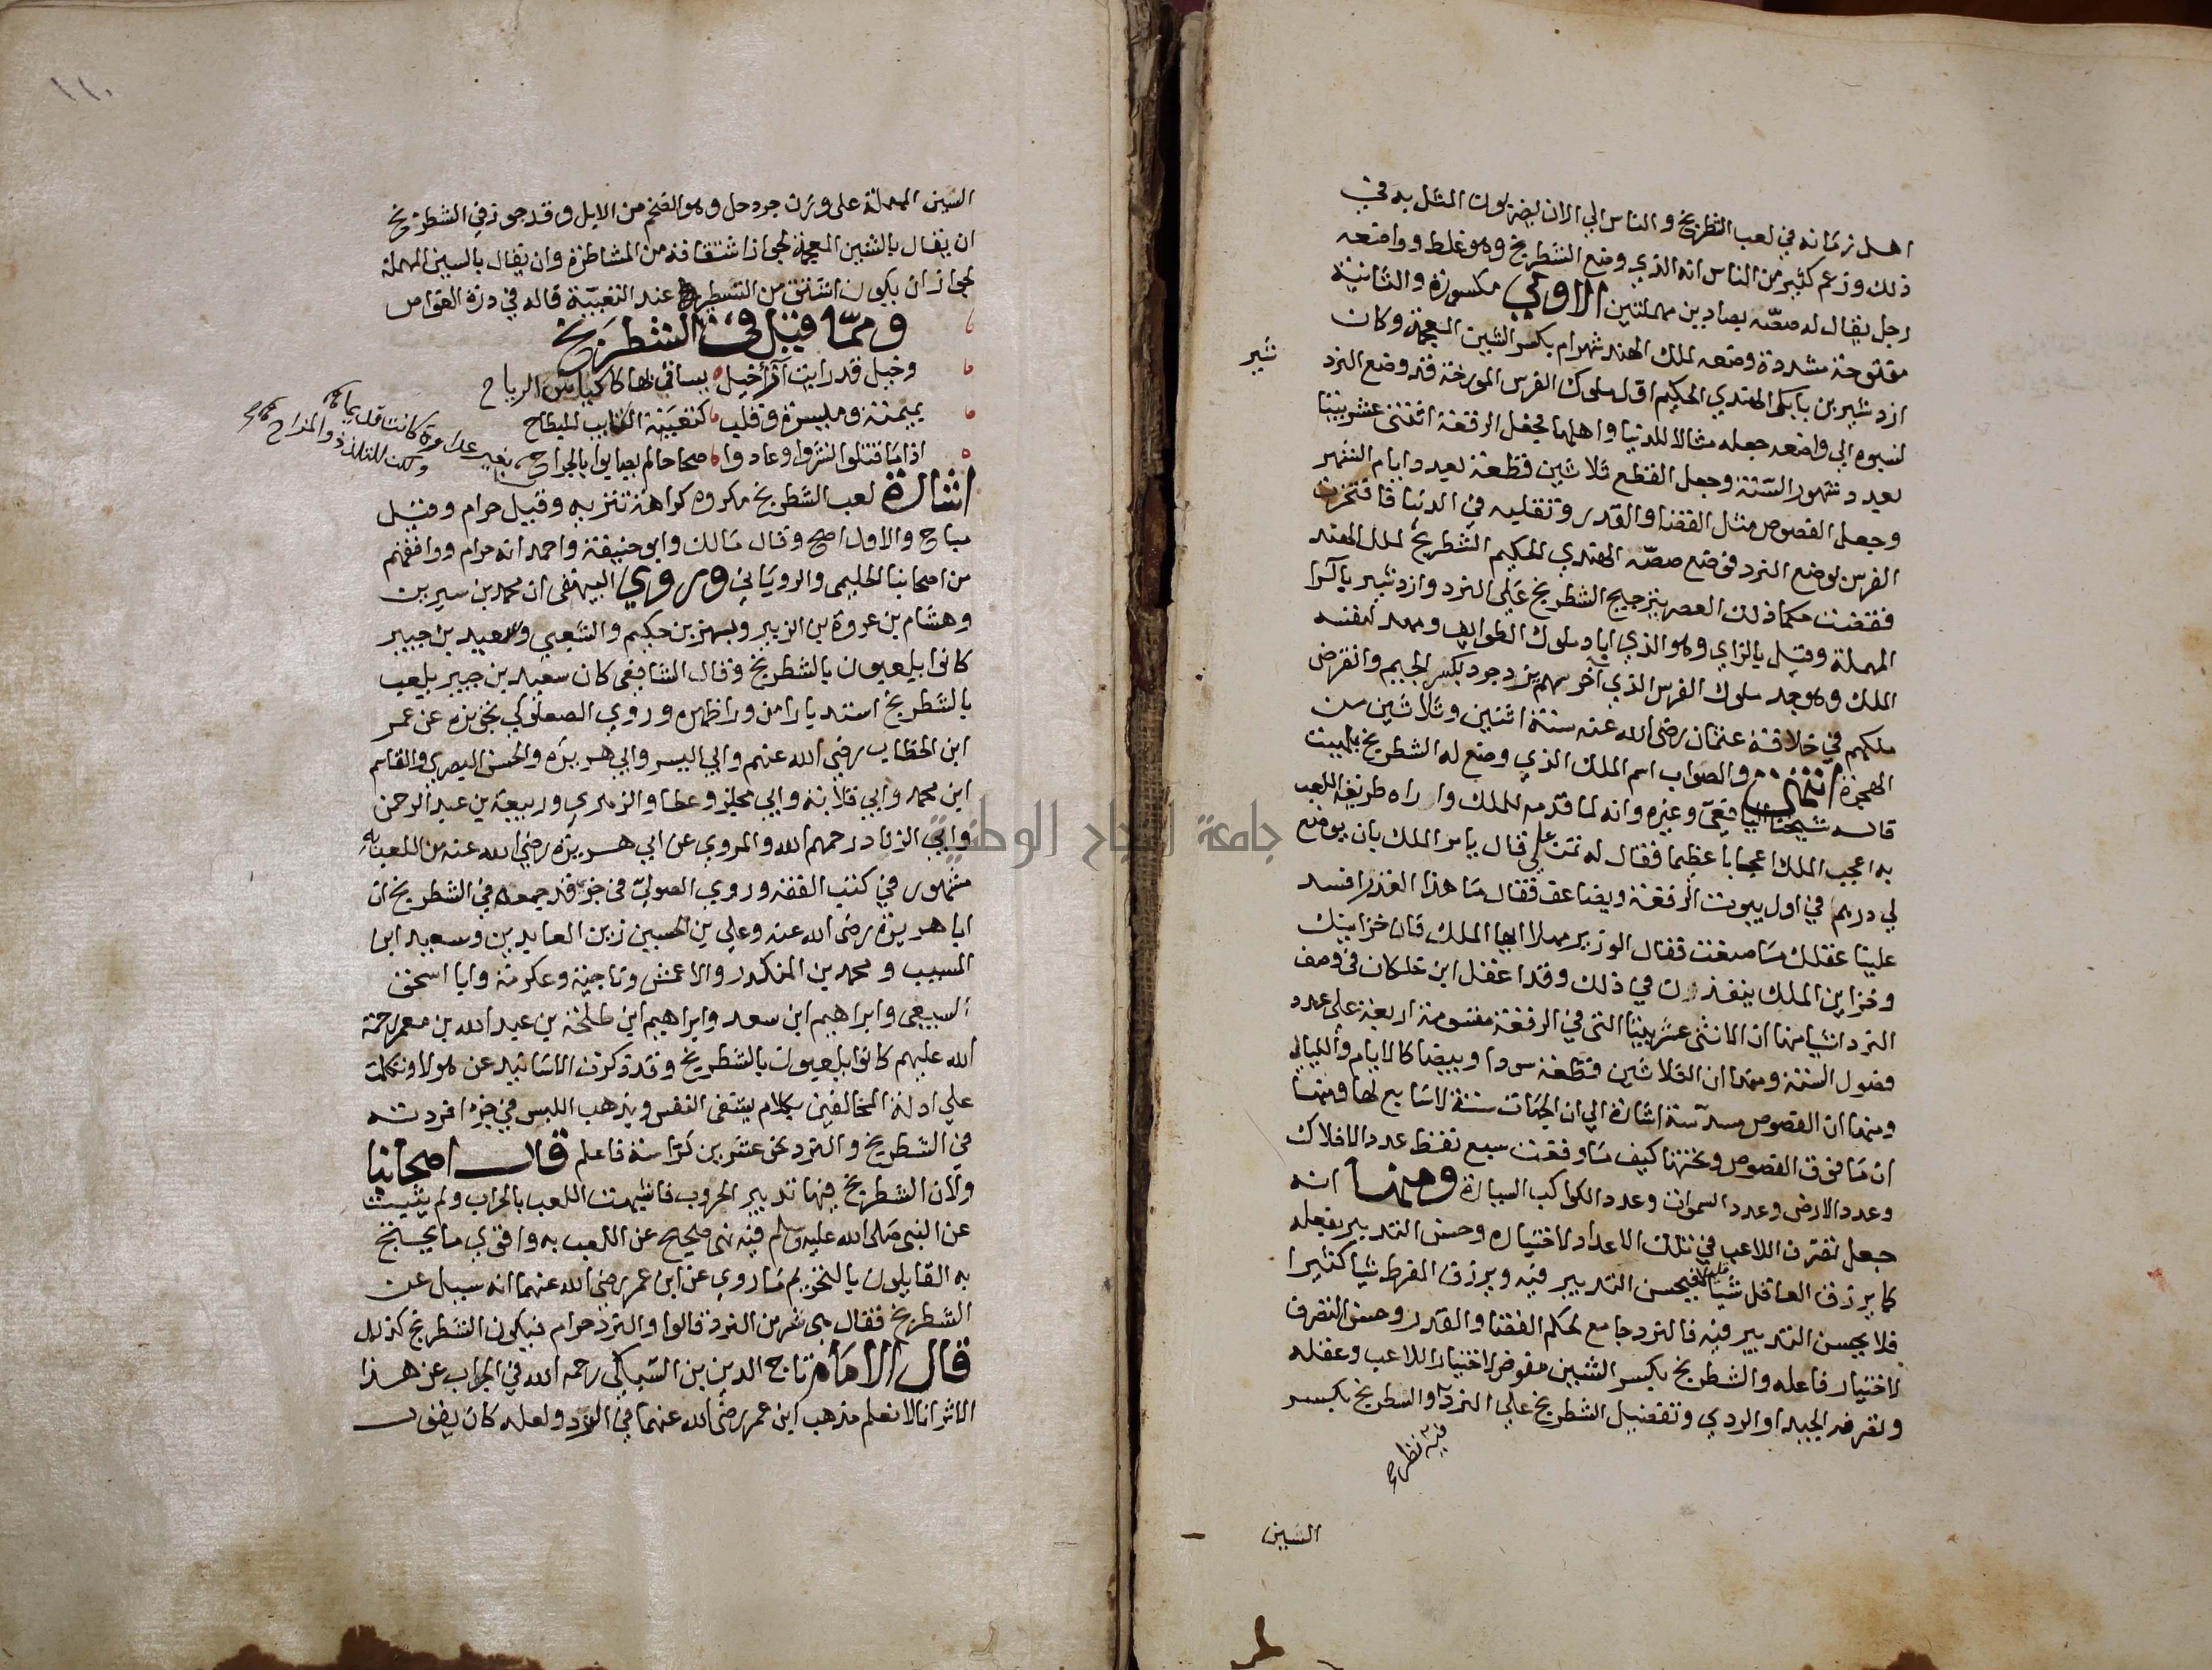 اهل زمانه في لعب الشطرنج والناس الي الان يضربون المثل به في
ذلك وزعم كثير من الناس انه الذي وضع الشطرنج وهو غلط وواضعه
رجل يقال له صصه بصادين مهملتين الاولي مكسورة والثانية
مفتوحة مشددة وضعه لملك الهند شهرام بكسر الشين المعجمة وكان
ازدشير بن بابك اول ملوك الفرس المورخة قد وضع النرد
شير
لنسبوه الي واضعه جعله مثالا للدنيا واهلها فجعل الرقعة اثنتي عشر بيتا
بعدد شهور السنة وجعل القطع ثلاثين قطعة بعدد ايام الشهر
وجعل الفصوص مثل القضا والقدر وتقلبه في الدنيا فافتخرت
الفرس بوضع النرد فوضع صصه الهندي الحكيم الشطرنج لملك الهند
فقضت حكما ذلك العصر بترجيح الشطرنج علي النرد وازدشير بالرا
المهملة وقيل بالزاي وهو الذي اباد ملوك الطوايف ومهد لنفسه
الملك وهو جد ملوك الفرس الذي آخرهم يزدجرد بكسر الجيم وانقرض
ملكهم في خلافة عثمان رضي الله عنه سنة اثنين وثلاثين من
الهجرة انتهى والصواب اسم الملك الذي وضع له الشطرنج بلهيت
قاله شيخنا اليافعي وغيره وانه لما قدمه للملك واراه طريقة اللعب
به اعجب الملك اعجابا عظيما فقال له تمن علي قال يامر الملك بان يوضع
لي درهم في اول بيوت الرقعة ويضاعف فقال ما هذا القدر افسد
علينا عقلك ما صنعت فقال الوزير مهلا ايها الملك فان خزاينك
وخزاين الملوك ينفذون في ذلك وقد اغفل ابن خلكان في وصف
النرد اشيا منها ان الاثني عشر بيتا التي في الرقعة مقسومة اربعة علي عدد
فصول السنة ومنها ان الثلاثين قطعة سودا وبيضا كالايام والليالي
ومنها ان الفصوص مسدسة اشارة الي ان الجهات ستة لا سابع لها ومنها
ان ما فوق الفصوص وتحتها كيف ما وقعت سبع نقط عدد الافلاك
وعدد الارض وعدد السموات وعدد الكواكب السيارة ومنها انه
جعل تصرف اللاعب في تلك الاعداد لاختياره وحسن التدبير بعقله
كما يرزق العاقل شيا قليلا فيحسن التدبير فيه ويرزق المفرط شيا كثيرا
فلا يحسن التدبير فيه فالنرد جامع لحكم القضا والقدر وحسن التصرف
لاختيار فاعله والشطرنج بكسر الشين مفوض لاختيار اللاعب وعقله
وتصرفه الجيد او الردي وتفضيل الشطرنج علي النرد والشطرنج بكسر
فيه نظر
السين
١١٠
السين المهملة علي وزن جردحل وهو الضخم من الابل وقد جوز في الشطرنج
ان يقال بالشين المعجمة لجواز اشتقاقه من المشاطرة وان يقال بالسين المهملة
لجواز ان يكون اشتق من التسطير عند التعبية قاله في درة الغواص
ومما قيل في الشطرنج
وخيل قد رايت آزا خيل بساقي لها كاس الرياح
بميمنة وميسرة وقلب كتعبية الكتايب للبطاح
اذا ما قتلوا نشروا وعادوا صحاحا لم يعابوا بالجراح
بغير عداوة كانت قديما
ولكن للتلذذ والمزاح
اشارة لعب الشطرنج مكروه كراهة تنزيه وقيل حرام وقيل
مباح والاول اصح وقال مالك وابو حنيفة واحمد انه حرام ووافقهم
من اصحابنا الحليمي والروياني وروي البيهقي ان محمد بن سيرين
وهشام بن عروة بن الزبير وبهز بن حكيم والشعبي وسعيد بن جبير
كانوا يلعبون بالشطرنج وقال الشافعي كان سعيد بن جبير يلعب
بالشطرنج استدبارا من ورا ظهره وروي الصعلوكي تجويزه عن عمر
ابن الخطاب رضي الله عنهم وابي اليسر وابي هريرة والحسن البصري والقاسم
ابن محمد وابي قلابة وابي مجلز وعطا والزهري وربيعة بن عبد الرحمن
وابي الزناد رحمهم الله والمروي عن ابي هريرة رضي الله عنه من اللعب به
مشهور في كتب الفقه وروي الصولي في جزء قد جمعه في الشطرنج ان
ابا هريرة رضي الله عنه وعلي بن الحسين زين العابدين وسعيد ابن
المسيب ومحمد بن المنكدر والاعمش وناجية وعكرمة وابا اسحق
السبيعي وابراهيم ابن سعد وابراهيم ابن طلحة بن عبد الله بن معمر رحمة
الله عليهم كانوا يلعبون بالشطرنج وقد ذكرت الاسانيد عن هولا وتكلمت
علي ادلة المخالفين بكلام يشفي النفس ويذهب اللبس في جزء افردته
في الشطرنج والنرد نحو عشرين كراسة فاعلم قال اصحابنا
ولان الشطرنج فيها تدبير الحروب فاشبهت اللعب بالحراب ولم يثبت
عن النبي صلى الله عليه وسلم فيه نهي صحيح عن اللعب به واقوي ما يحتج
به القايلون بالتحريم ما روي عن ابن عمر رضي الله عنهما انه سيل عن
الشطرنج فقال هي شر من النرد قالوا والنرد حرام فيكون الشطرنج كذلك
قال الامام تاج الدين بن السبكي رحمه الله في الجواب عن هذا
الاثر انا لا نعلم مذهب ابن عمر رضي الله عنهما في النرد ولعله كان يقول
جامعة النجاح الوطنية